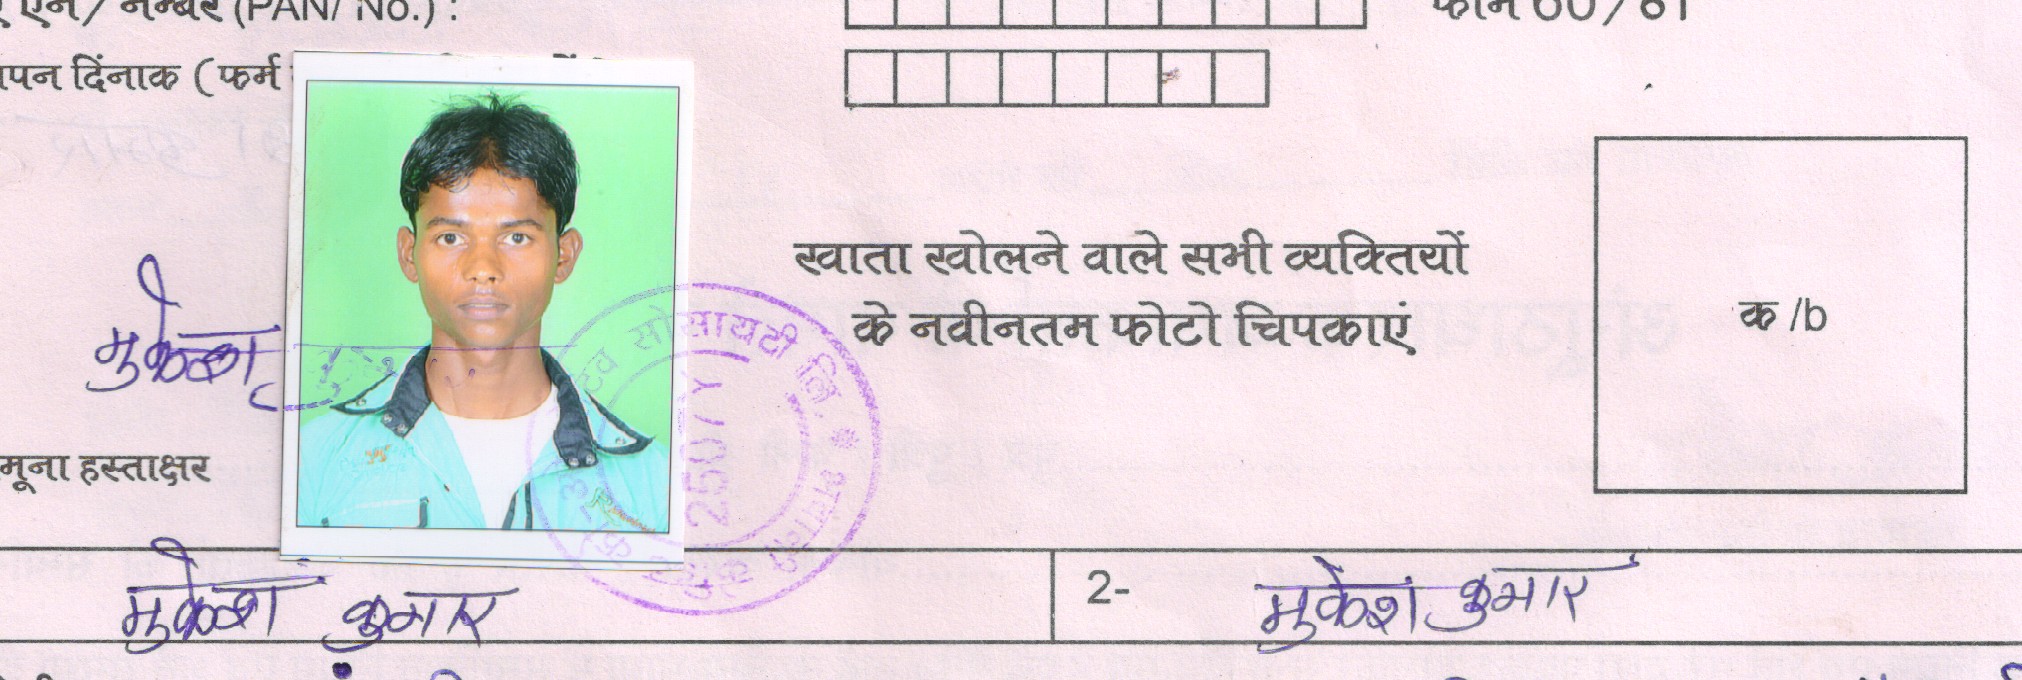 एन/ नम्बर (PAN/ No.) : फॉर्म 60/61
पन दिंनाक ( फर्म
खाता खोलने वाले सभी व्यक्तियों
के नवीनतम फोटो चिपकाएं
क /b
मुकेश
मूना हस्ताक्षर
सोसायटी लि.
2507Y
मुकेश कुमार
2- मुकेश कुमार